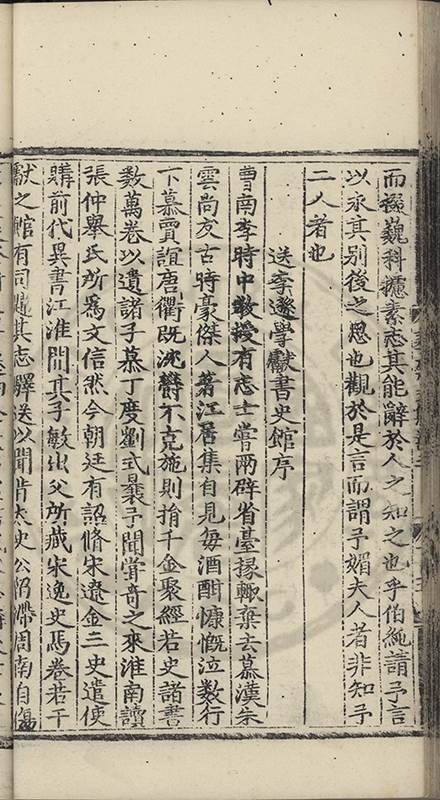 而掇巍科攄素志其能辭於人之知之也乎伯純請予言
以永其別後之思也觀於是言而謂予媚夫人者非知予
二人者也
送李遂學獻書史館序
曹南李時中敎授有志士嘗兩辟省臺掾輙棄去慕漢朱
雲尚友古時豪傑人著江居集自見每酒酣慷慨泣數行
下慕賈誼唐衢既沈欝不克施則捐千金聚經若史諸書
數萬卷以遺諸子慕丁度劉式曩予聞甞奇之來淮南讀
張仲舉氏所爲文信然今朝廷有詔脩宋遼金三史遣使
購前代異書江淮間其子敏出父所藏宋逸史焉卷若干
獻之館有司 其志驛送以聞昔太史公 滯周南自傷